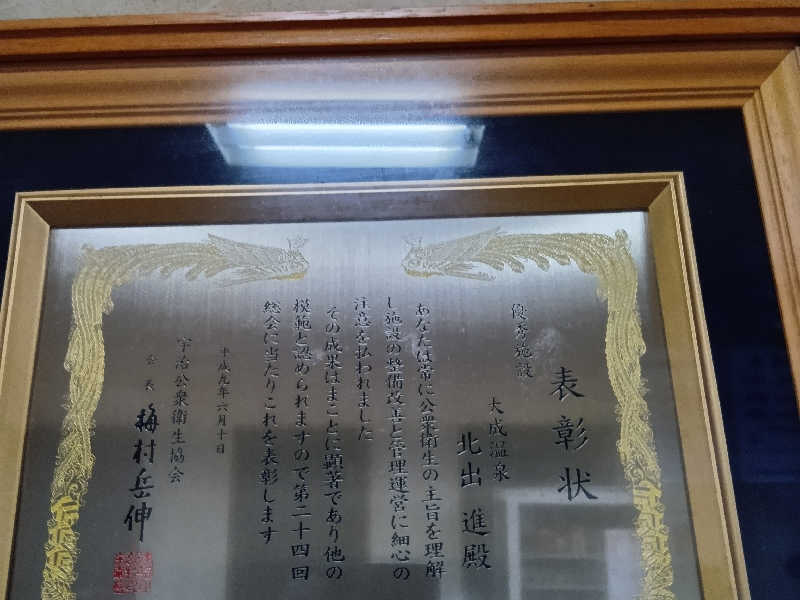 表彰状
優秀施設
大成温泉
北出進殿
あなたは常に公衆衛生の主旨を理解
し施設の整備改善と管理運営に細心の
注意を払われました
その成果はまことに顕著であり他の
模範と認められますので第二十四回
総会に当たりこれを表彰します
平成九年六月十日
宇治公衆衛生協会
会長 梅村岳伸